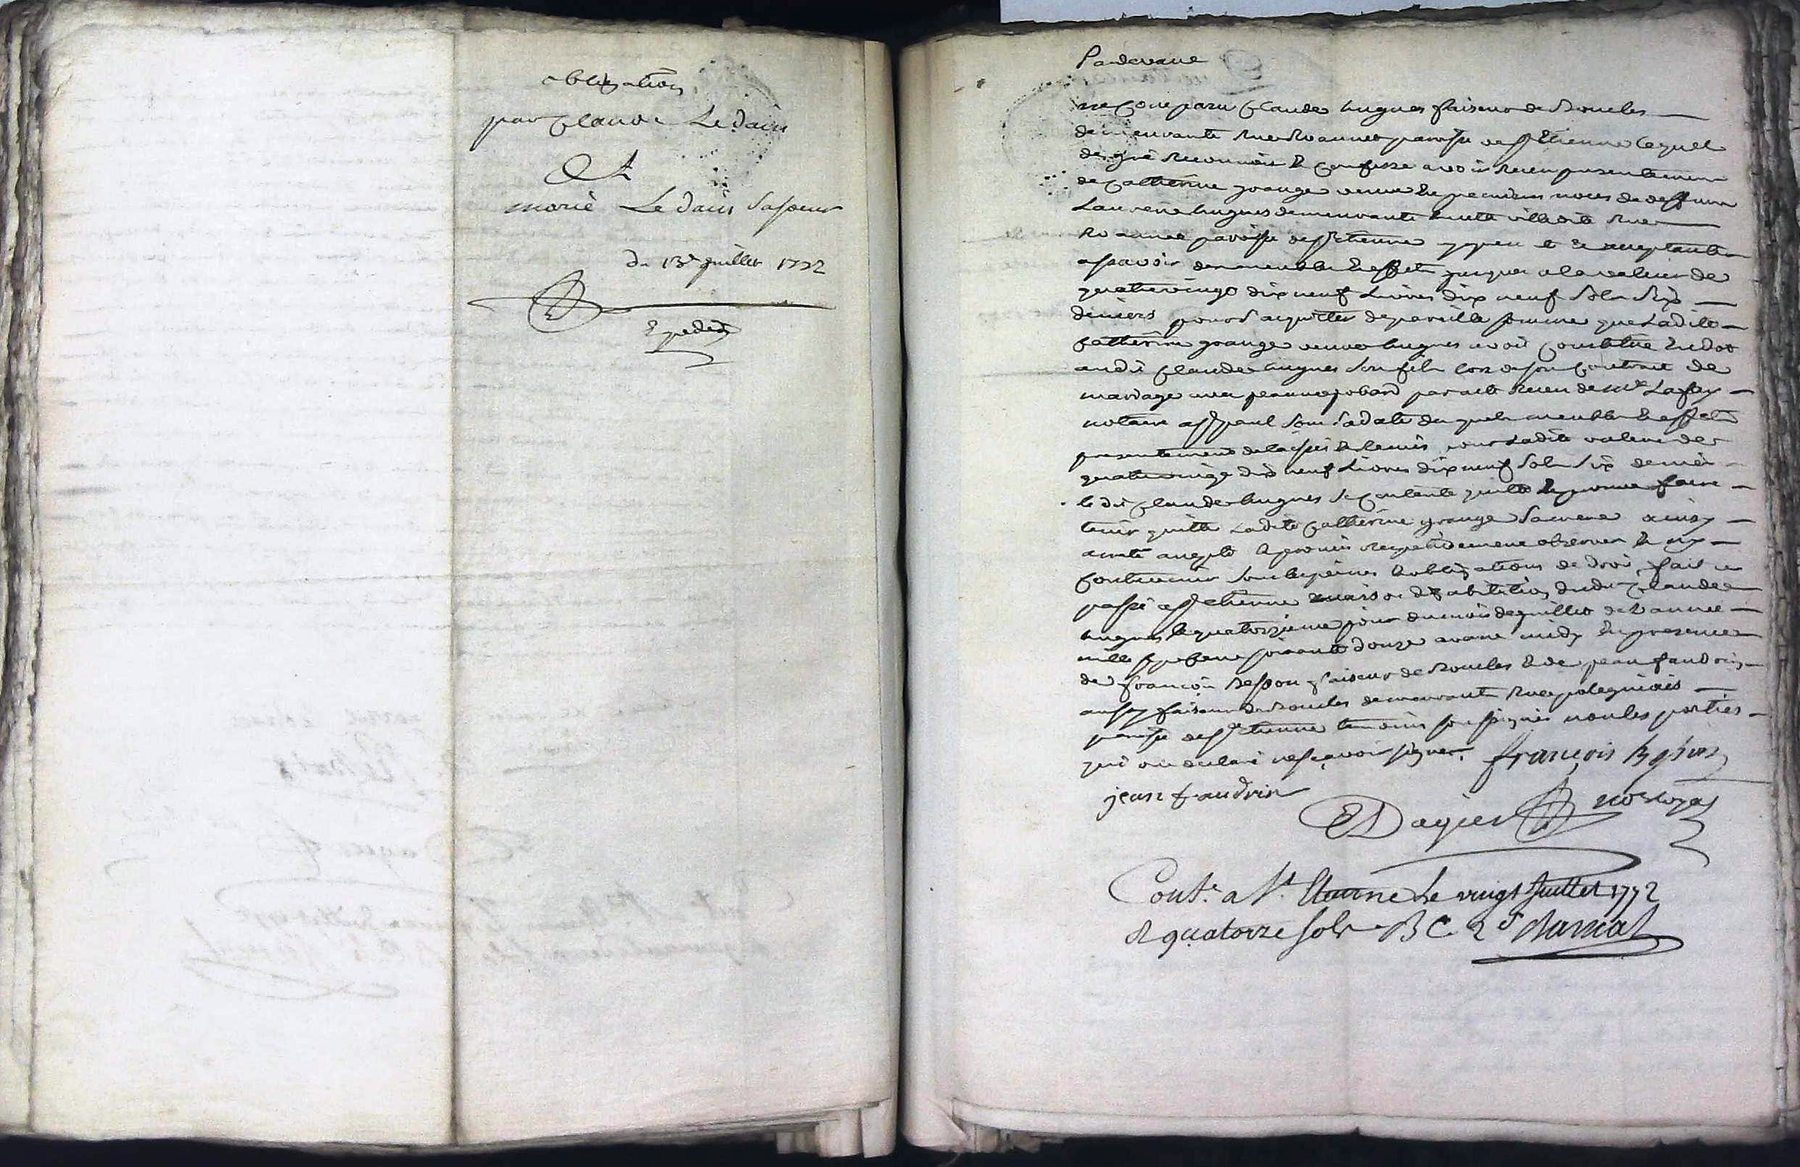 obligation
par Claude Le dain
Et
marie Le dain Sa soeur
du 13e juillet 1772
Expediée
Pardevant
est Comparu Claude hugues faiseur de Boucles
demeurante Rue Roannes paroisse de st Etienne lequel
de gré Reconnoit & confesse avoir Receu presentement
de Catherine grange veuve En premieres noces de deffunt
Laurens hugues demeurante En cette ville dite Rue
Roannes paroisse de st Etienne & acceptante
a sçavoir des meubles & effets jusques a la valeur de
quatrevingt dix neuf Livres dix neuf Sols Six
deniers pour s'acquitter de pareille somme que Ladite
Catherine grange veuve hugues avoit Constitué En dot
audit Claude hugues Son fils lors de son Contrat de
mariage avec jeanne jobard par acte Receu de Me Lafay
notaire Sous Sa date desquels meubles & effets
presentement delaissés & Remis pour Ladite valeur de
quatrevingt dix neuf Livres dix neuf Sols Six deniers
le dit Claude hugues Se Contente quitte & promet faire
tenir quitte Ladite Catherine grange Sa mere ainsy
accepté & promis respectivement observer & n'y
Contrevenir Sous les peines & obligations de droit, fait et
passé a st Etienne maison d'habitation dudit Claude
hugues le quatorzieme jour du mois de juillet de L'année
mille sept cent soixante douze avant midy En presence
de françois faiseur de Boucles & de jean faudrin
aussy faiseur de Boucles demeurants Rue polignais
paroisse de st Etienne temoins soussignés non les parties
qui ont declaré ne sçavoir signer.
françois
jean faudrin
Dagier noe Royal
Conte. a St. Etienne Le vingt Juillet 1772
R quatorze Sols